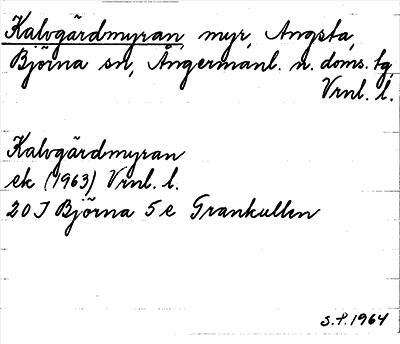 Kalvgärdmyran, myr, Angsta,
Björna sn, Ångermanl. n. doms. tg,
Vrnl. l.
Kalvgärdmyran
ek (1963) Vrnl. l.
20 J Björna 5 e Grankullen
S.f. 1964